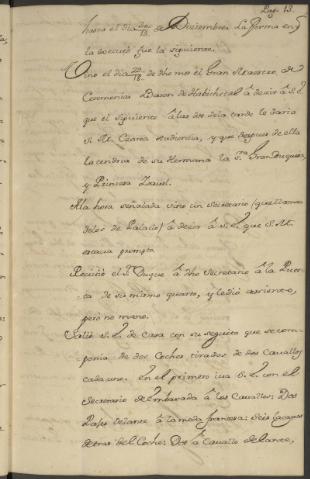 Pag. 13.
hasta el dia 20/13 de Diciembre. La forma en q̃
la executó fue la siguiente.
Vino el dia 20/18 de dho mes el Gran Maestro de
Ceremonias Baron de Habichstal â decir â S.E.
que el siguiente â las dos dela tarde le daria
S. M. Czarea audiencia, y que despues de ella
la tendria de su Hermana la S.ra Gran Duquesa,
y Princesa
Ala hora señalada vino un Secretario (que llaman
de Palacio) â decir â S. E. que S. M.
estaua prompta
Reciuió el S.r Duque â dho Secretario â la Puer-
ta de su mismo quarto, y le dió asiento,
pero no mano.
Salió S. E. de Casa con su seguito que se com-
ponia de dos Coches tirados de dos Cauallos
cada uno. en el primero iua S. E. con el
Secretario de Embaxada â los Cauallos: Dos
Pajes delante â la moda francesa: Seis Lacayos
detras del Coche: Dos â Cauallo delante,